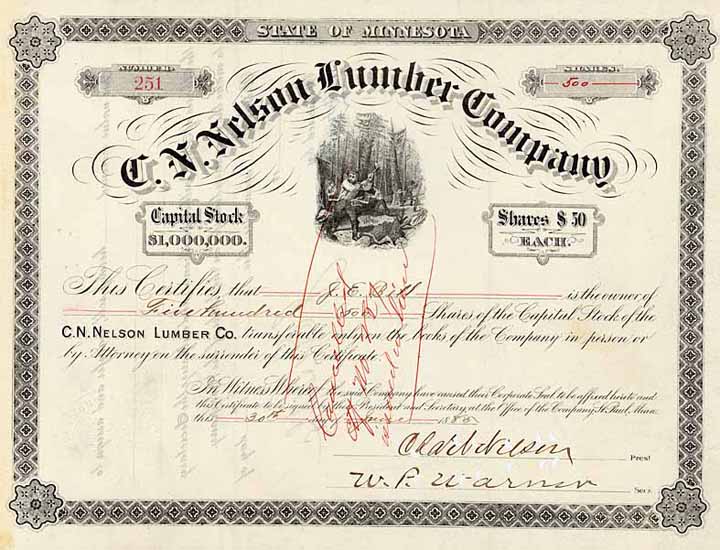 STATE OF MINNESOTA
NUMBER. 251
SHARES. 500
C. N. Nelson Lumber Company
Capital Stock
$1,000,000.
Shares $50
EACH.
This Certifies that J. E. is the owner of
Five hundred Shares of the Capital Stock of the
C. N. NELSON LUMBER CO. transferable only on the books of the Company in person or
by Attorney on the surrender of this Certificate.
In Witness Whereof the said Company have caused their Corporate Seal to be affixed hereto and
this Certificate to be signed by their President and Secretary, at the Office of the Company, St. Paul, Minn.
this 30th
Cancelled
Pres't
W. P. Warner Sec'y